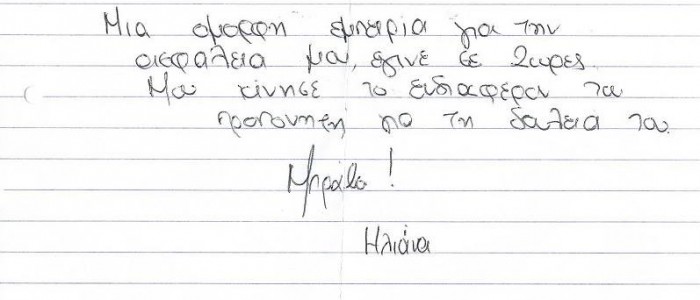 Μια όμορφη εμπειρία για την
ασφάλεια μου, έγινε σε 2 ώρες.
Μου κίνησε το ενδιαφέρον του
προπονητη για τη δουλεια του.
Μπράβο!
Ηλιάνα